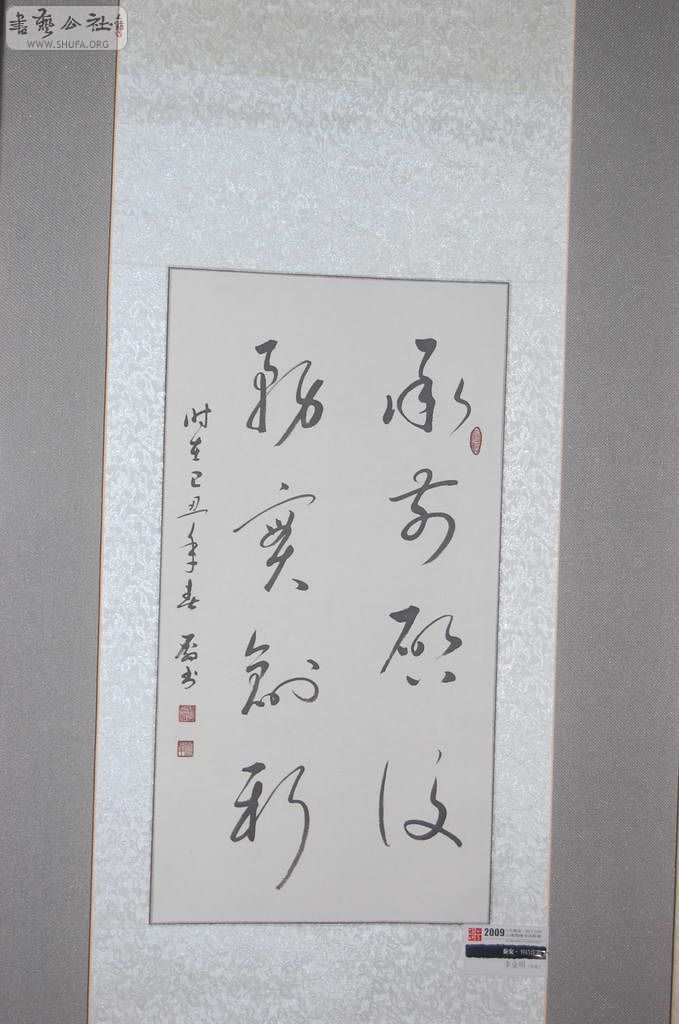 書藝公社
WWW.SHUFA.ORG
承前啟後
務實創新
时在己丑年春
书
2009